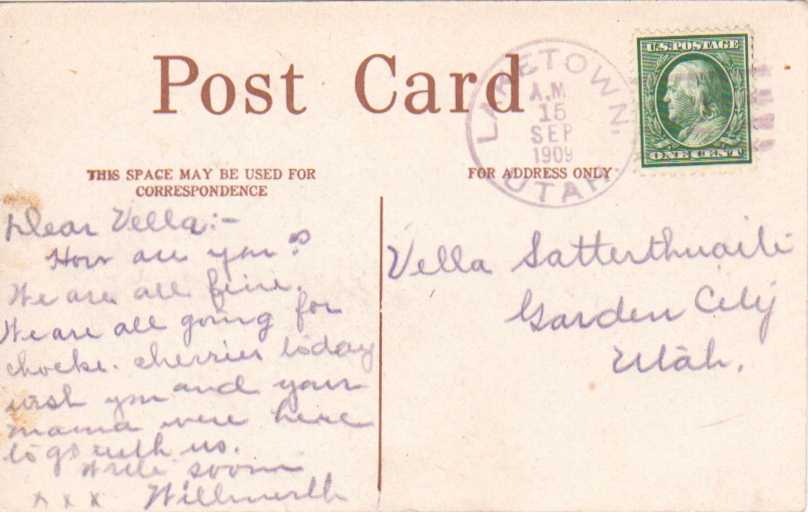 Post Card
LAKETOWN
A.M.
15
SEP
1909
UTAH.
U.S. POSTAGE
ONE CENT
THIS SPACE MAY BE USED FOR
CORRESPONDENCE
FOR ADDRESS ONLY
Dear Vella:-
How are you?
We are all feine.
We are all going for
chocke. cherries today
wish you and your
mama were here
to go with us.
Write soon
x x x Willmerth
Vella Satterthwaite
Garden City
Utah.